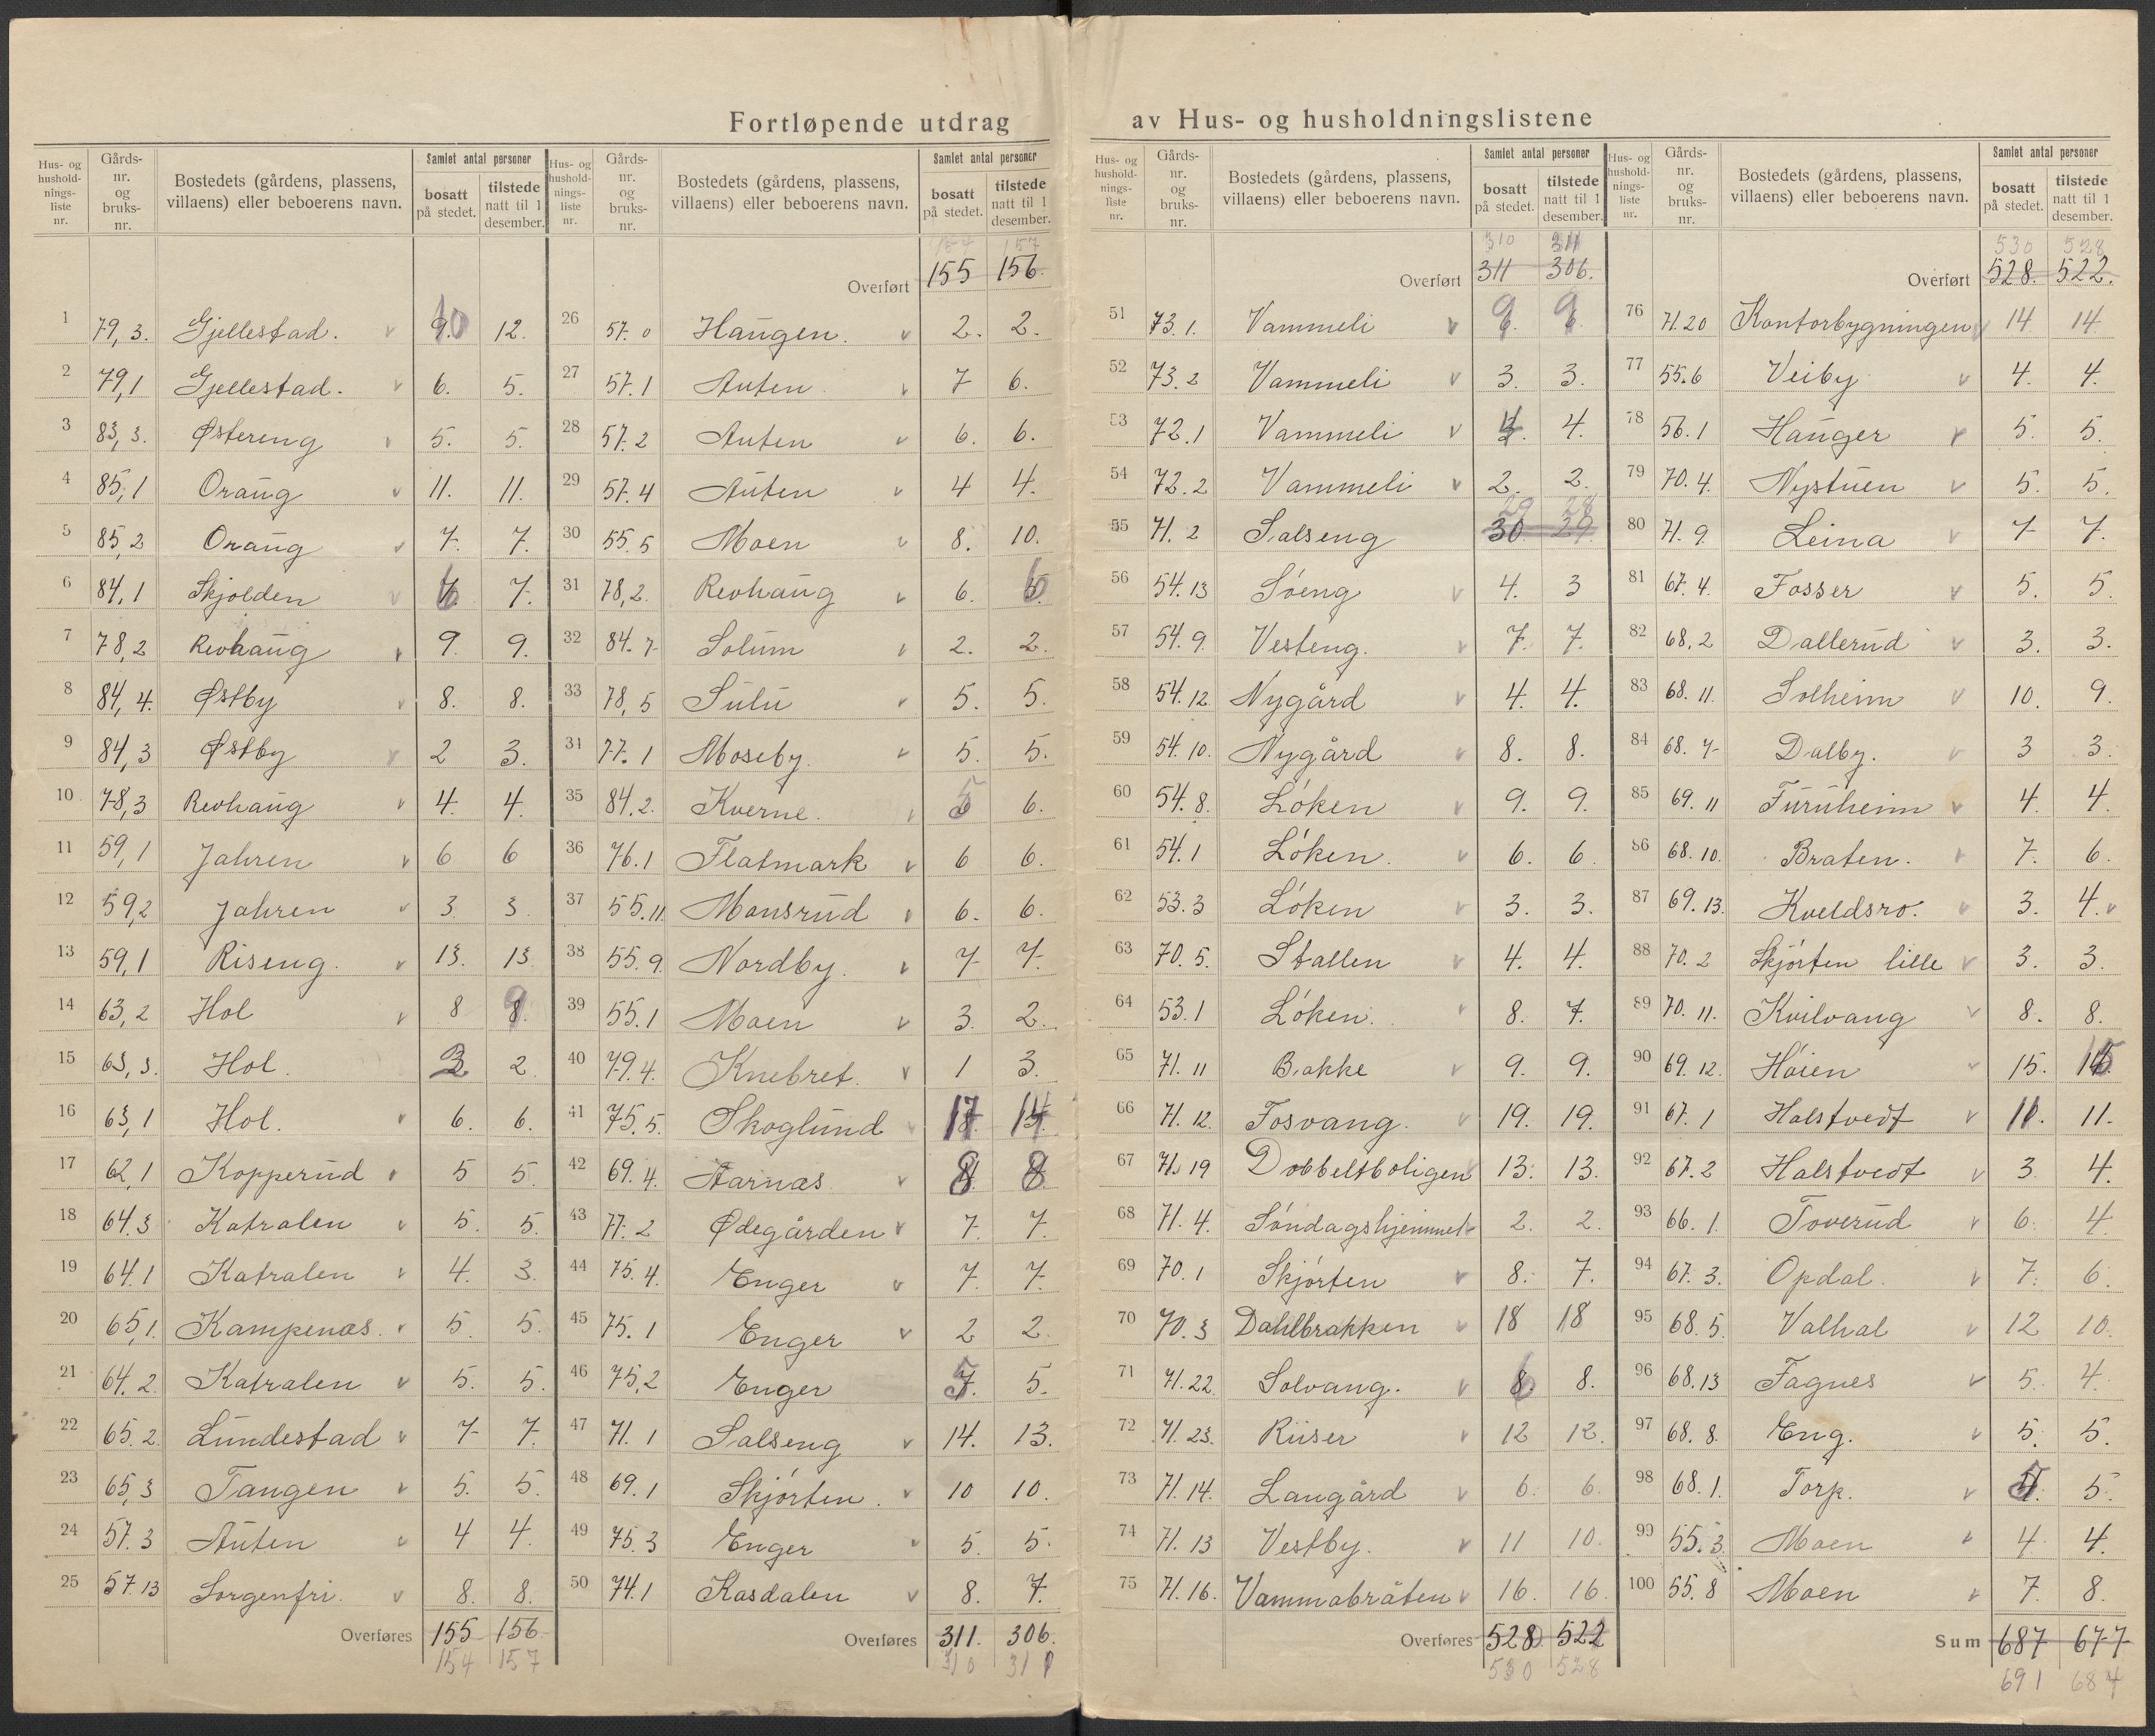 Fortløpende utdrag av Hus- og husholdningslistene
Hus- og husholdnings-liste nr. | Gårds-nr. og bruks-nr. | Bostedets (gårdens, plassens, villaens) eller beboerens navn. | Samlet antal personer | bosatt på stedet. | tilstede natt til 1 desember.
1 79,3. Gjellestad. 10 12.
2 79,1 Gjellestad. 6. 5.
3 83,3. Østereng 5. 5.
4 85,1 Oraug 11. 11.
5 85,2 Oraug 7. 7.
6 84,1 Skjolden 6 7.
7 78,2 Revhaug 9. 9.
8 84,4. Østby 8. 8.
9 84,3 Østby 2 3.
10 78,3 Revhaug 4. 4.
11 59,1 Jahren 6 6
12 59,2 Jahren 3. 3.
13 59,1 Riseng. 13. 13.
14 63,2 Hol 8 9
15 63,3. Hol. 2
16 63,1 Hol. 6. 6.
17 62,1 Kopperud 5 5.
18 64.3 Katralen 5. 5.
19 64.1 Katralen 4. 3.
20 65,1. Kampenæs. 5. 5.
21 64.2. Katralen 5. 5.
22 65.2 Lundestad 7 7.
23 65,3 Tangen 5. 5.
24 57.3 Auten 4 4.
25 57.13 Sorgenfri. 8. 8.
Overføres 155 156.
154 157
Hus- og husholdnings-liste nr. | Gårds-nr. og bruks-nr. | Bostedets (gårdens, plassens, villaens) eller beboerens navn. | Samlet antal personer | bosatt på stedet. | tilstede natt til 1 desember.
154 157
Overført 155 156.
26 57.0 Haugen. 2. 2.
27 57.1 Auten 7 6.
28 57.2 Auten 6. 6.
29 57.4 Auten 4 4.
30 55.5 Moen 8. 10.
31 78,2. Revhaug 6. 6
32 84.7 Solum 2. 2.
33 78,5 Sulu 5. 5.
34 77.1 Moseby. 5. 5.
35 84,2. Kverne. 5 6.
36 76.1 Flatmark 6 6.
37 55.11 Monsrud 6. 6.
38 55.9 Nordby. 7 7.
39 55.1 Moen 3. 2.
40 79.4. Knebret. 1 3.
41 75.5. Skoglund 17 14
42 69.4. Aarnæs 8 8
43 77.2 Ødegården 7. 7.
44 75.4. Enger 7. 7.
45 75.1 Enger 2 2.
46 75,2 Enger 5 5.
47 71.1 Salseng 14. 13.
48 69.1 Skjørten. 10 10.
49 75.3 Enger 5. 5.
50 74.1 Kasdalen 8. 7.
Overføres 311. 306.
310 311
Hus- og husholdnings-liste nr. | Gårds-nr. og bruks-nr. | Bostedets (gårdens, plassens, villaens) eller beboerens navn. | Samlet antal personer | bosatt på stedet. | tilstede natt til 1 desember.
310 311
Overført 311 306.
51 73.1. Vammeli 9 9
52 73.2 Vammeli 3. 3.
53 72.1 Vammeli 4. 4.
54 72.2 Vammeli 2. 2.
29 28
55 71.2 Salseng 30 29.
56 54.13 Søeng 4. 3
57 54.9. Vesteng. 7. 7.
58 54.12. Nygård 4. 4.
59 54.10. Nygård 8. 8.
60 54.8. Løken 9. 9.
61 54.1 Løken. 6. 6.
62 53.3 Løken 3. 3.
63 70.5. Stallen 4. 4.
64 53.1 Løken. 8. 7.
65 71.11 Bakke 9. 9.
66 71.12. Fosvang. 19. 19.
67 71.19 Dobbeltboligen 13. 13.
68 71.4. Søndagshjemmet 2. 2.
69 70.1 Skjørten 8. 7.
70 70.3 Dahlbrakken 18 18
71 71.22. Solvang. 6 8.
72 71.23. Riiser 12 12.
73 71.14. Langård 6. 6.
74 71.13 Vestby. 11 10.
75 71.16. Vammabråten 16. 16.
Overføres 528 522
530 528
Hus- og husholdnings-liste nr. | Gårds-nr. og bruks-nr. | Bostedets (gårdens, plassens, villaens) eller beboerens navn. | Samlet antal personer | bosatt på stedet. | tilstede natt til 1 desember.
530 528
Overført 528. 522.
76 71.20 Kontorbygningen 14. 14.
77 55.6 Veiby 4. 4.
78 56.1 Hauger 5. 5.
79 70.4. Nystuen 5. 5.
80 71.9. Leina 7 7.
81 67.4. Fosser 5. 5.
82 68.2 Dallerud 3. 3.
83 68.11. Solheim 10. 9.
84 68.7 Dalby. 3 3.
85 69.11 Furuheim 4. 4.
86 68.10. Braten. 7. 6.
87 69.13. Kveldsro. 3. 4.
88 70.2 Skjørten lille 3. 3.
89 70.11. Kvilvang 8. 8.
90 69.12. Høien 15. 15
91 67.1 Halstvedt 11. 11.
92 67.2 Halstvedt 3 4.
93 66.1. Toverud 6. 4.
94 67.3. Opdal. 7. 6.
95 68.5. Valhal 12 10.
96 68.13 Fagnes 5. 4.
97 68.8. Eng. 5. 5.
98 68.1. Torp. 5.
99 55.3. Moen 4. 4.
100 55.8 Moen 7. 8.
Sum 687 677
691 684